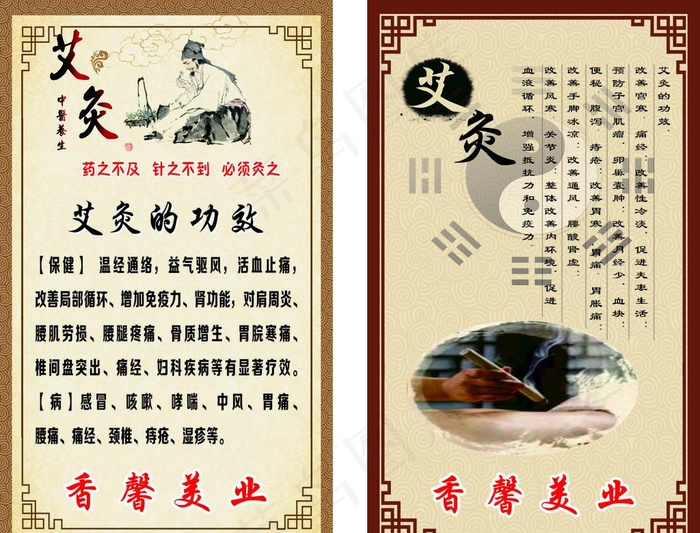 艾灸
中醫養生
药之不及 针之不到 必须灸之
艾灸的功效
【保健】 温经通络，益气驱风，活血止痛，
改善局部循环、增加免疫力、肾功能，对肩周炎、
腰肌劳损、腰腿疼痛、骨质增生、胃脘寒痛、
椎间盘突出、痛经、妇科疾病等有显著疗效。
【病】感冒、咳嗽、哮喘、中风、胃痛、
腰痛、痛经、颈椎、痔疮、湿疹等。
香馨美业
艾灸
艾灸的功效：
改善宫寒 痛经：改善性冷淡 促进夫妻生活：
预防子宫肌瘤 卵巢囊肿：改善月经少 血块：
便秘 腹泻 痔疮：改善胃寒 胃痛 胃胀痛：
改善手脚冰凉：改善通风 腰酸肾虚：
改善风寒 关节炎：整体改善内环境 促进
血液循环 增强抵抗力和免疫力
香馨美业